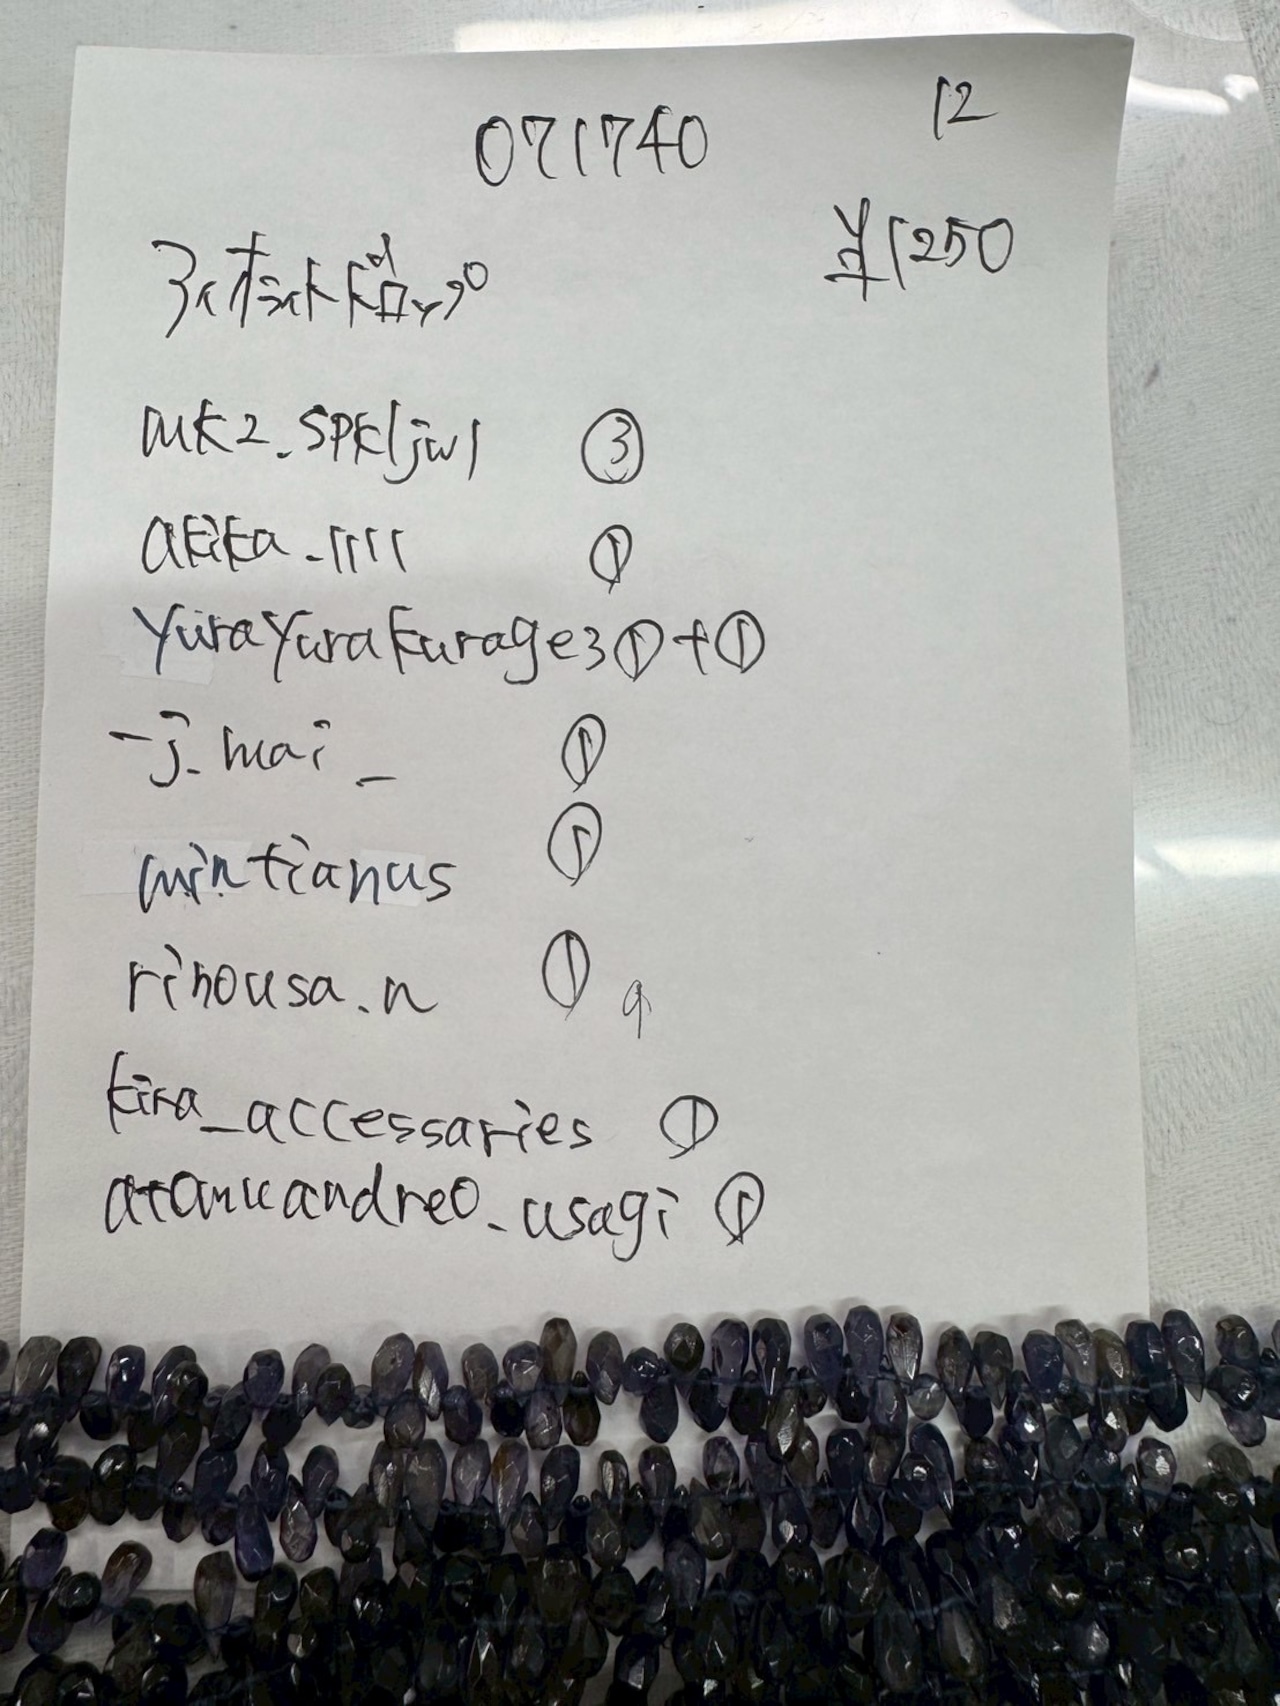 071740
12
¥1250
アイオライトドロップ
mk2_spkljwl ③
akika_1111 ①
yurayurakurage3①+①
-j.mai_ ①
mintianus ①
rinousa.n ① 9
kira_accessaries ①
atamicandreo_usagi ①